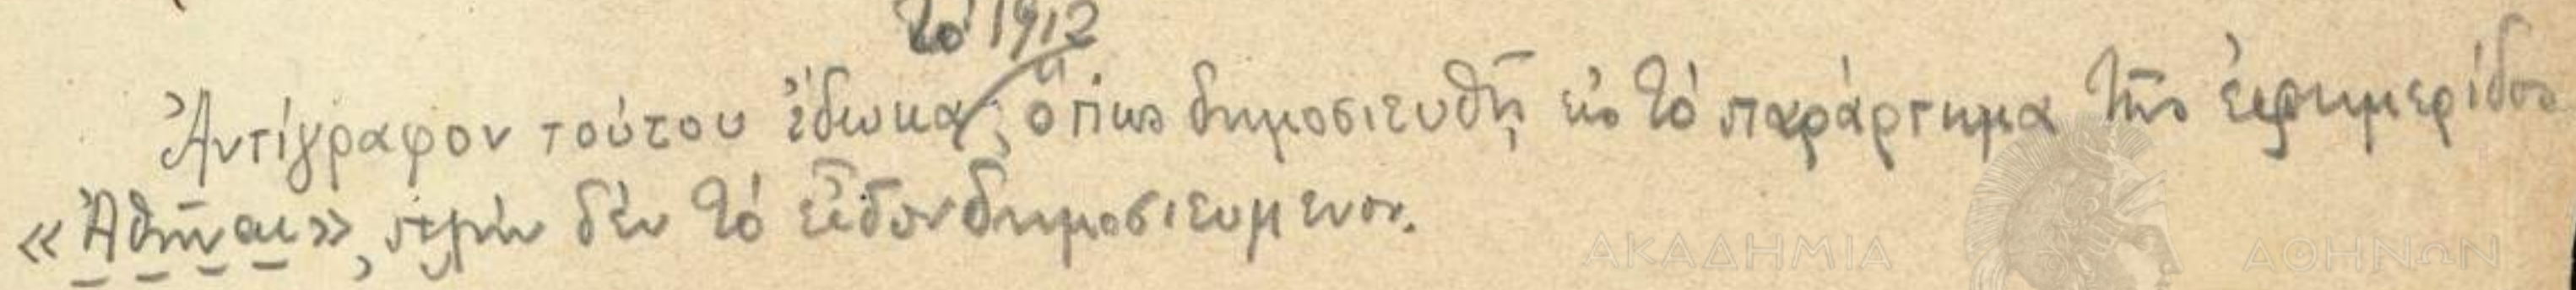 τὸ 1912
Ἀντίγραφον τούτου ἔδωκα, ὅπως δημοσιευθῇ εἰς τὸ παράρτημα τῆς ἐφημερίδος
«Ἀθῆναι», πλὴν δὲν τὸ εἶδον δημοσιευμένον.
ΑΚΑΔΗΜΙΑ ΑΘΗΝΩΝ